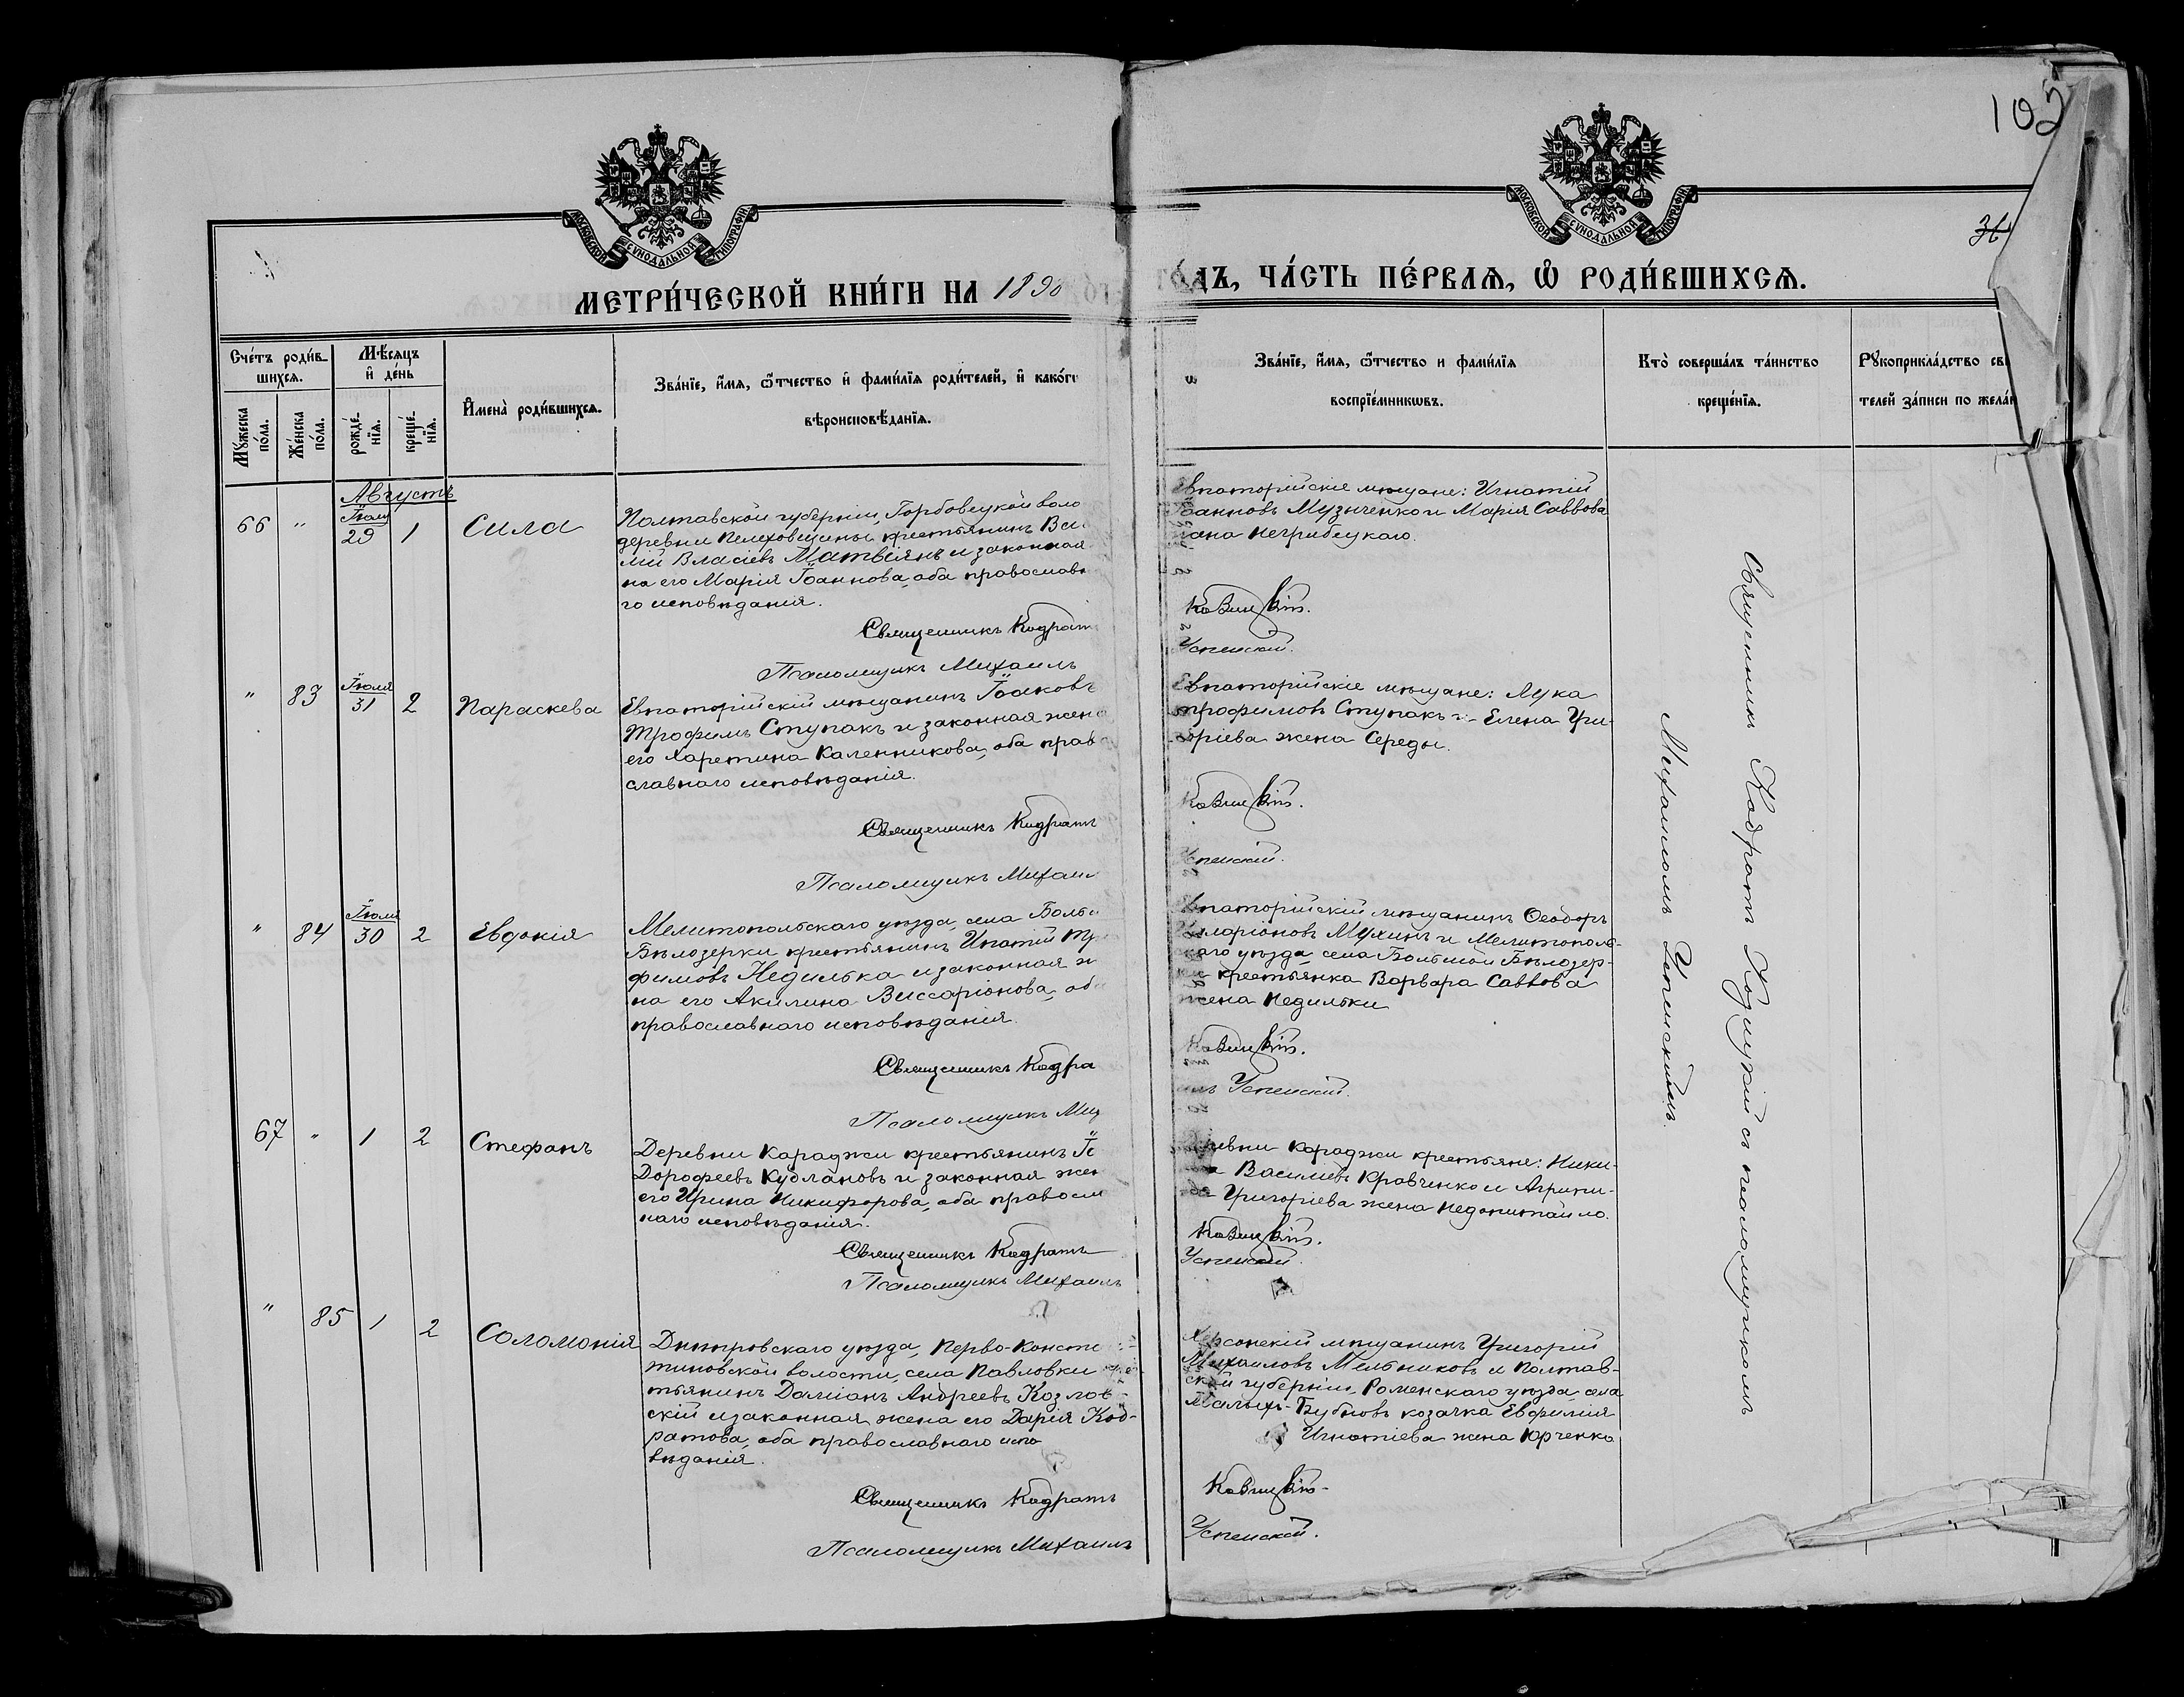 102
МОСКОВСКОЙ СѴНОДАЛЬНОЙ ТИПОГРАФІИ
МОСКОВСКОЙ СѴНОДАЛЬНОЙ ТИПОГРАФІИ
МЕТРИ́ЧЕСКОЙ КНИ́ГИ НА 1890
го́дъ, ЧА́СТЬ ПЕ́РВАѦ, Ѡ҆ РОДИ́ВШИХСѦ.
Сче́тъ роди́в-
шихсѧ.
Мꙋ́жеска по́ла.
Же́нска по́ла.
Мѣ́сѧцъ
и҆ де́нь
рожде́-
нїѧ.
креще́-
нїѧ.
И҆мена̀ роди́вшихсѧ.
Зва́нїе, и҆́мѧ, ѻ҆́тчество и҆ фами́лїѧ роди́телей, и҆ како́гѡ
вѣроисповѣ́данїѧ.
Зва́нїе, и҆́мѧ, ѻ҆́тчество и фами́лїѧ
воспрїе́мникѡвъ.
Кто̀ соверша́лъ та́инство
креще́нїѧ.
Рꙋкоприкла́дство сви
телей за́писи по жела́н
Августъ
66 " Іюля 29 1 Сила
Полтавской губерніи, Горбовецкой воло
деревни Пелеховщины крестьянинъ Ва
лій Власіевъ Матвіянъ и законная
на его Марія Іоаннова, оба православн
го исповѣданія.
Священникъ Кодрат
Псаломщикъ Михаилъ
Евпаторійскіе мѣщане: Игнатій
Іоанновъ Музыченко и Марія Саввова
жена Негрибецкаго.
Успенскій.
" 83 Іюля 31 2 Параскева
Евпаторійскій мѣщанинъ Іаковъ
Трофимъ Ступакъ и законная жена
его Харетина Каленникова, оба прав
славнаго исповѣданія.
Священникъ Кодратъ
Псаломщикъ Михаил
Евпаторійскіе мѣщане: Лука
Трофимовъ Ступакъ и Елена Гри-
горіева жена Середы.
Успенскій.
" 84 Іюля 30 2 Евдокія
Мелитопольскаго уѣзда, села Больш
Бѣлозерки крестьянинъ Ипатій Тр
фимовъ Недилька и законная ж
на его Акилина Виссаріонова, оба
православнаго исповѣданія.
Священникъ Кодра
Псаломщикъ Мих
Евпаторійскій мѣщанинъ Ѳеодоръ
Иларіоновъ Мухинъ и Мелитополь-
скаго уѣзда, села Большой Бѣлозер-
ки крестьянка Варвара Саввова
жена Недильки
Успенскій.
67 " 1 2 Стефанъ
Деревни Караджи крестьянинъ Іо
Дорофеевъ Кублановъ и законная жен
его Ирина Никифорова, оба правосл
наго исповѣданія.
Священникъ Кодратъ
Псаломщикъ Михаилъ
Деревни Караджи крестьяне: Ники-
та Василіевъ Кравченко и Агрипи-
на Григоріева жена Недопитайло.
Успенскій.
" 85 1 2 Соломонія
Днѣпровскаго уѣзда, Перво-Конста
тиновской волости, села Павловки кре
тьянинъ Даміанъ Андреевъ Козлов-
скій и законная жена его Дарія Код-
ратова, оба православнаго испо
вѣданія.
Священникъ Кодратъ
Псаломщикъ Михаилъ
Херсонскій мѣщанинъ Григорій
Михаиловъ Мельниковъ и Полтав-
ской губерніи, Роменскаго уѣзда, села
Малыхъ-Бубновъ козачка Евфимія
Игнатіева жена Юрченко
Успенскій.
Священникъ Кодратъ
съ псаломщикомъ
Михаиломъ Успенскимъ.